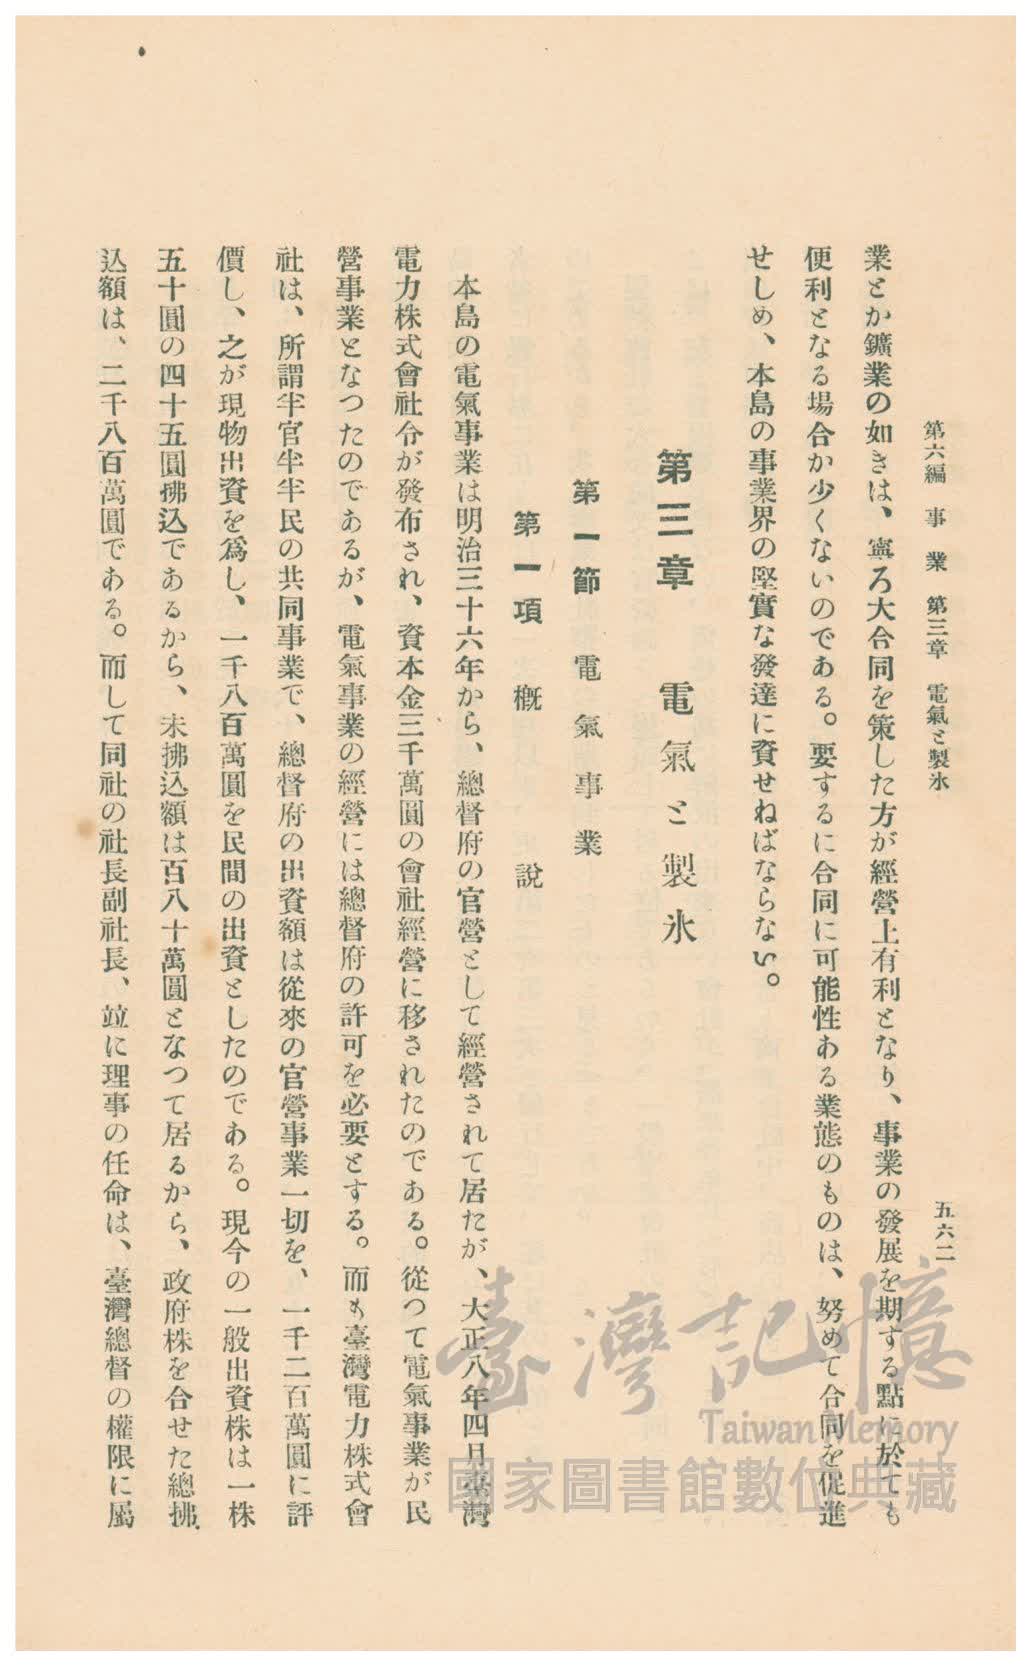 第六編 事業 第三章 電氣と製氷
五六二
業とか鑛業の如きは、寧ろ大合同を策した方が經營上有利となり、事業の發展を期する點に於ても
便利となる場合か少くないのである。要するに合同に可能性ある業態のものは、努めて合同を促進
せしめ、本島の事業界の堅實な發達に資せねばならない。
第三章 電氣と製氷
第一節 電氣事業
第一項 槪說
本島の電氣事業は明治三十六年から、總督府の官營として經營されて居たが、大正八年四月臺灣
電力株式會社令が發布され、資本金三千萬圓の會社經營に移されたのである。從つて電氣事業が民
營事業となつたのであるが、電氣事業の經營には總督府の許可を必要とする。而も臺灣電力株式會
社は、所謂半官半半民の共同事業で、總督府の出資額は從來の官營事業一切を、一千二百萬圓に評
價し、之が現物出資を爲し、一千八百萬圓を民間の出資としたのである。現今の一般出資株は一株
五十圓の四十五圓拂込であるから、未拂込額は百八十萬圓となつて居るから、政府株を合せた總拂
込額は、二千八百萬圓である。而して同社の社長副社長、竝に理事の任命は、臺灣總督の權限に屬
臺灣記憶
Taiwan Memory
國家圖書館數位典藏